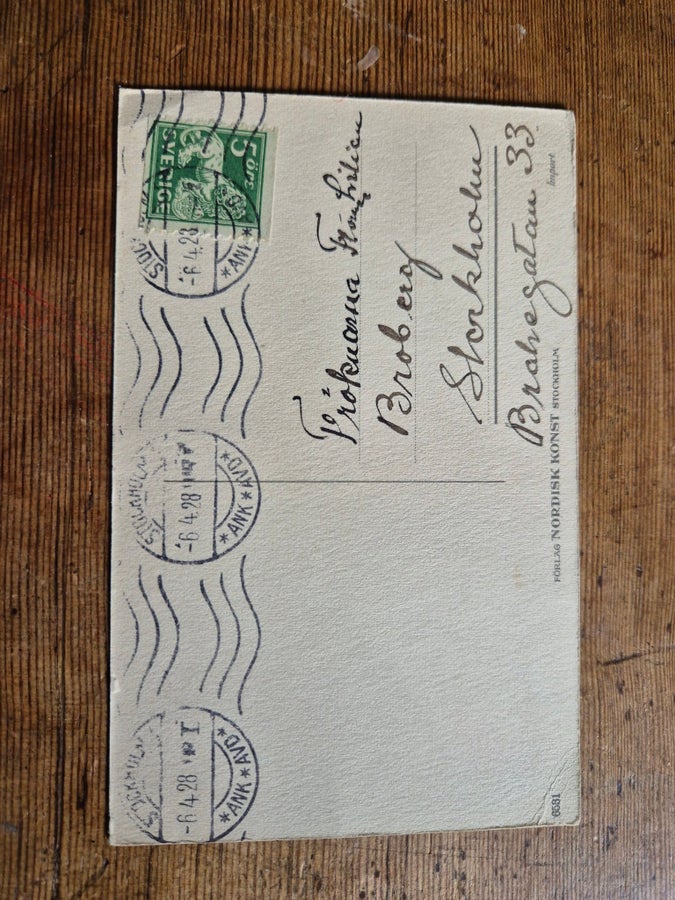 5 ÖRE
SVERIGE
-6.4.28
*ANK*AVD*
STOCKHOLM
-6.4.28
*ANK*AVD*
STOCKHOLM
-6.4.28
*ANK*AVD*
Fröknarna
Broberg
Stockholm
Brahegatan 33
Import
FÖRLAG NORDISK KONST STOCKHOLM
6581